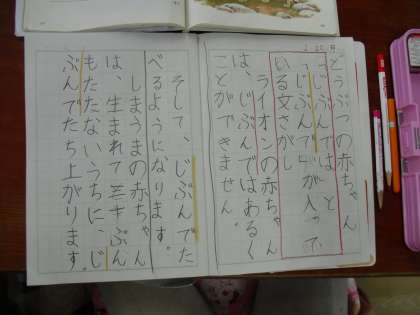 どうぶつの赤ちゃん
「じぶんでは」と
「じぶんで」が入って
いる文さがし
ライオンの赤ちゃん
は、じぶんではあるく
ことができません。
そして、じぶんでた
べるようになります。
しまうまの赤ちゃん
は、生まれて三十ぷん
もたたないうちに、じ
ぶんでたち上がります。